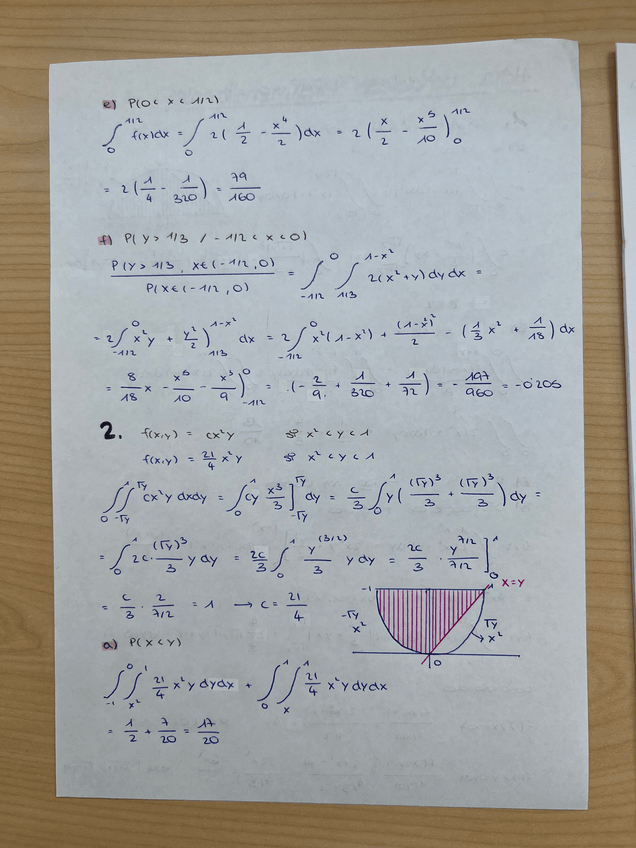 e) P(0 < x < 1/2)
∫_0^{1/2} f(x)dx = ∫_0^{1/2} 2( 1/2 - x^4/2 )dx = 2( x/2 - x^5/10 )_0^{1/2}
= 2( 1/4 - 1/320 ) = 79/160
f) P( Y > 1/3 / -1/2 < x < 0)
P(Y > 1/3, X∈(-1/2, 0) / P(X∈(-1/2, 0) = ∫_{-1/2}^0 ∫_{1/3}^{1-x²} 2(x²+y) dy dx =
= 2∫_{-1/2}^0 x²y + y²/2 )_{1/3}^{1-x²} dx = 2∫_{-1/2}^0 x²(1-x²) + (1-x²)²/2 - ( 1/3 x² + 1/18 ) dx
= 8/18 x - x^5/10 - x³/9 )_{-1/2}^0 = (- 2/9 + 1/320 + 1/72 ) = - 197/960 = -0'205
2. f(x,y) = cx²y si x² < y < 1
f(x,y) = 21/4 x²y si x² < y < 1
∫_0^1 ∫_{-√y}^{√y} cx²y dxdy = ∫_0^1 cy x³/3 ]_{-√y}^{√y} dy = c/3 ∫_0^1 y( (√y)³/3 + (√y)³/3 ) dy =
= ∫_0^1 2c · (√y)³/3 y dy = 2c/3 ∫_0^1 y^(3/2)/3 y dy = 2c/3 · y^{7/2}/7/2 ]_0^1
= c/3 · 2/7/2 = 1 → c = 21/4
-1 1 x=y
-√y x² √y x²
0
a) P(X < Y)
∫_{-1}^0 ∫_{x²}^1 21/4 x²y dydx + ∫_0^1 ∫_x^1 21/4 x²y dydx
= 1/2 + 7/20 = 17/20